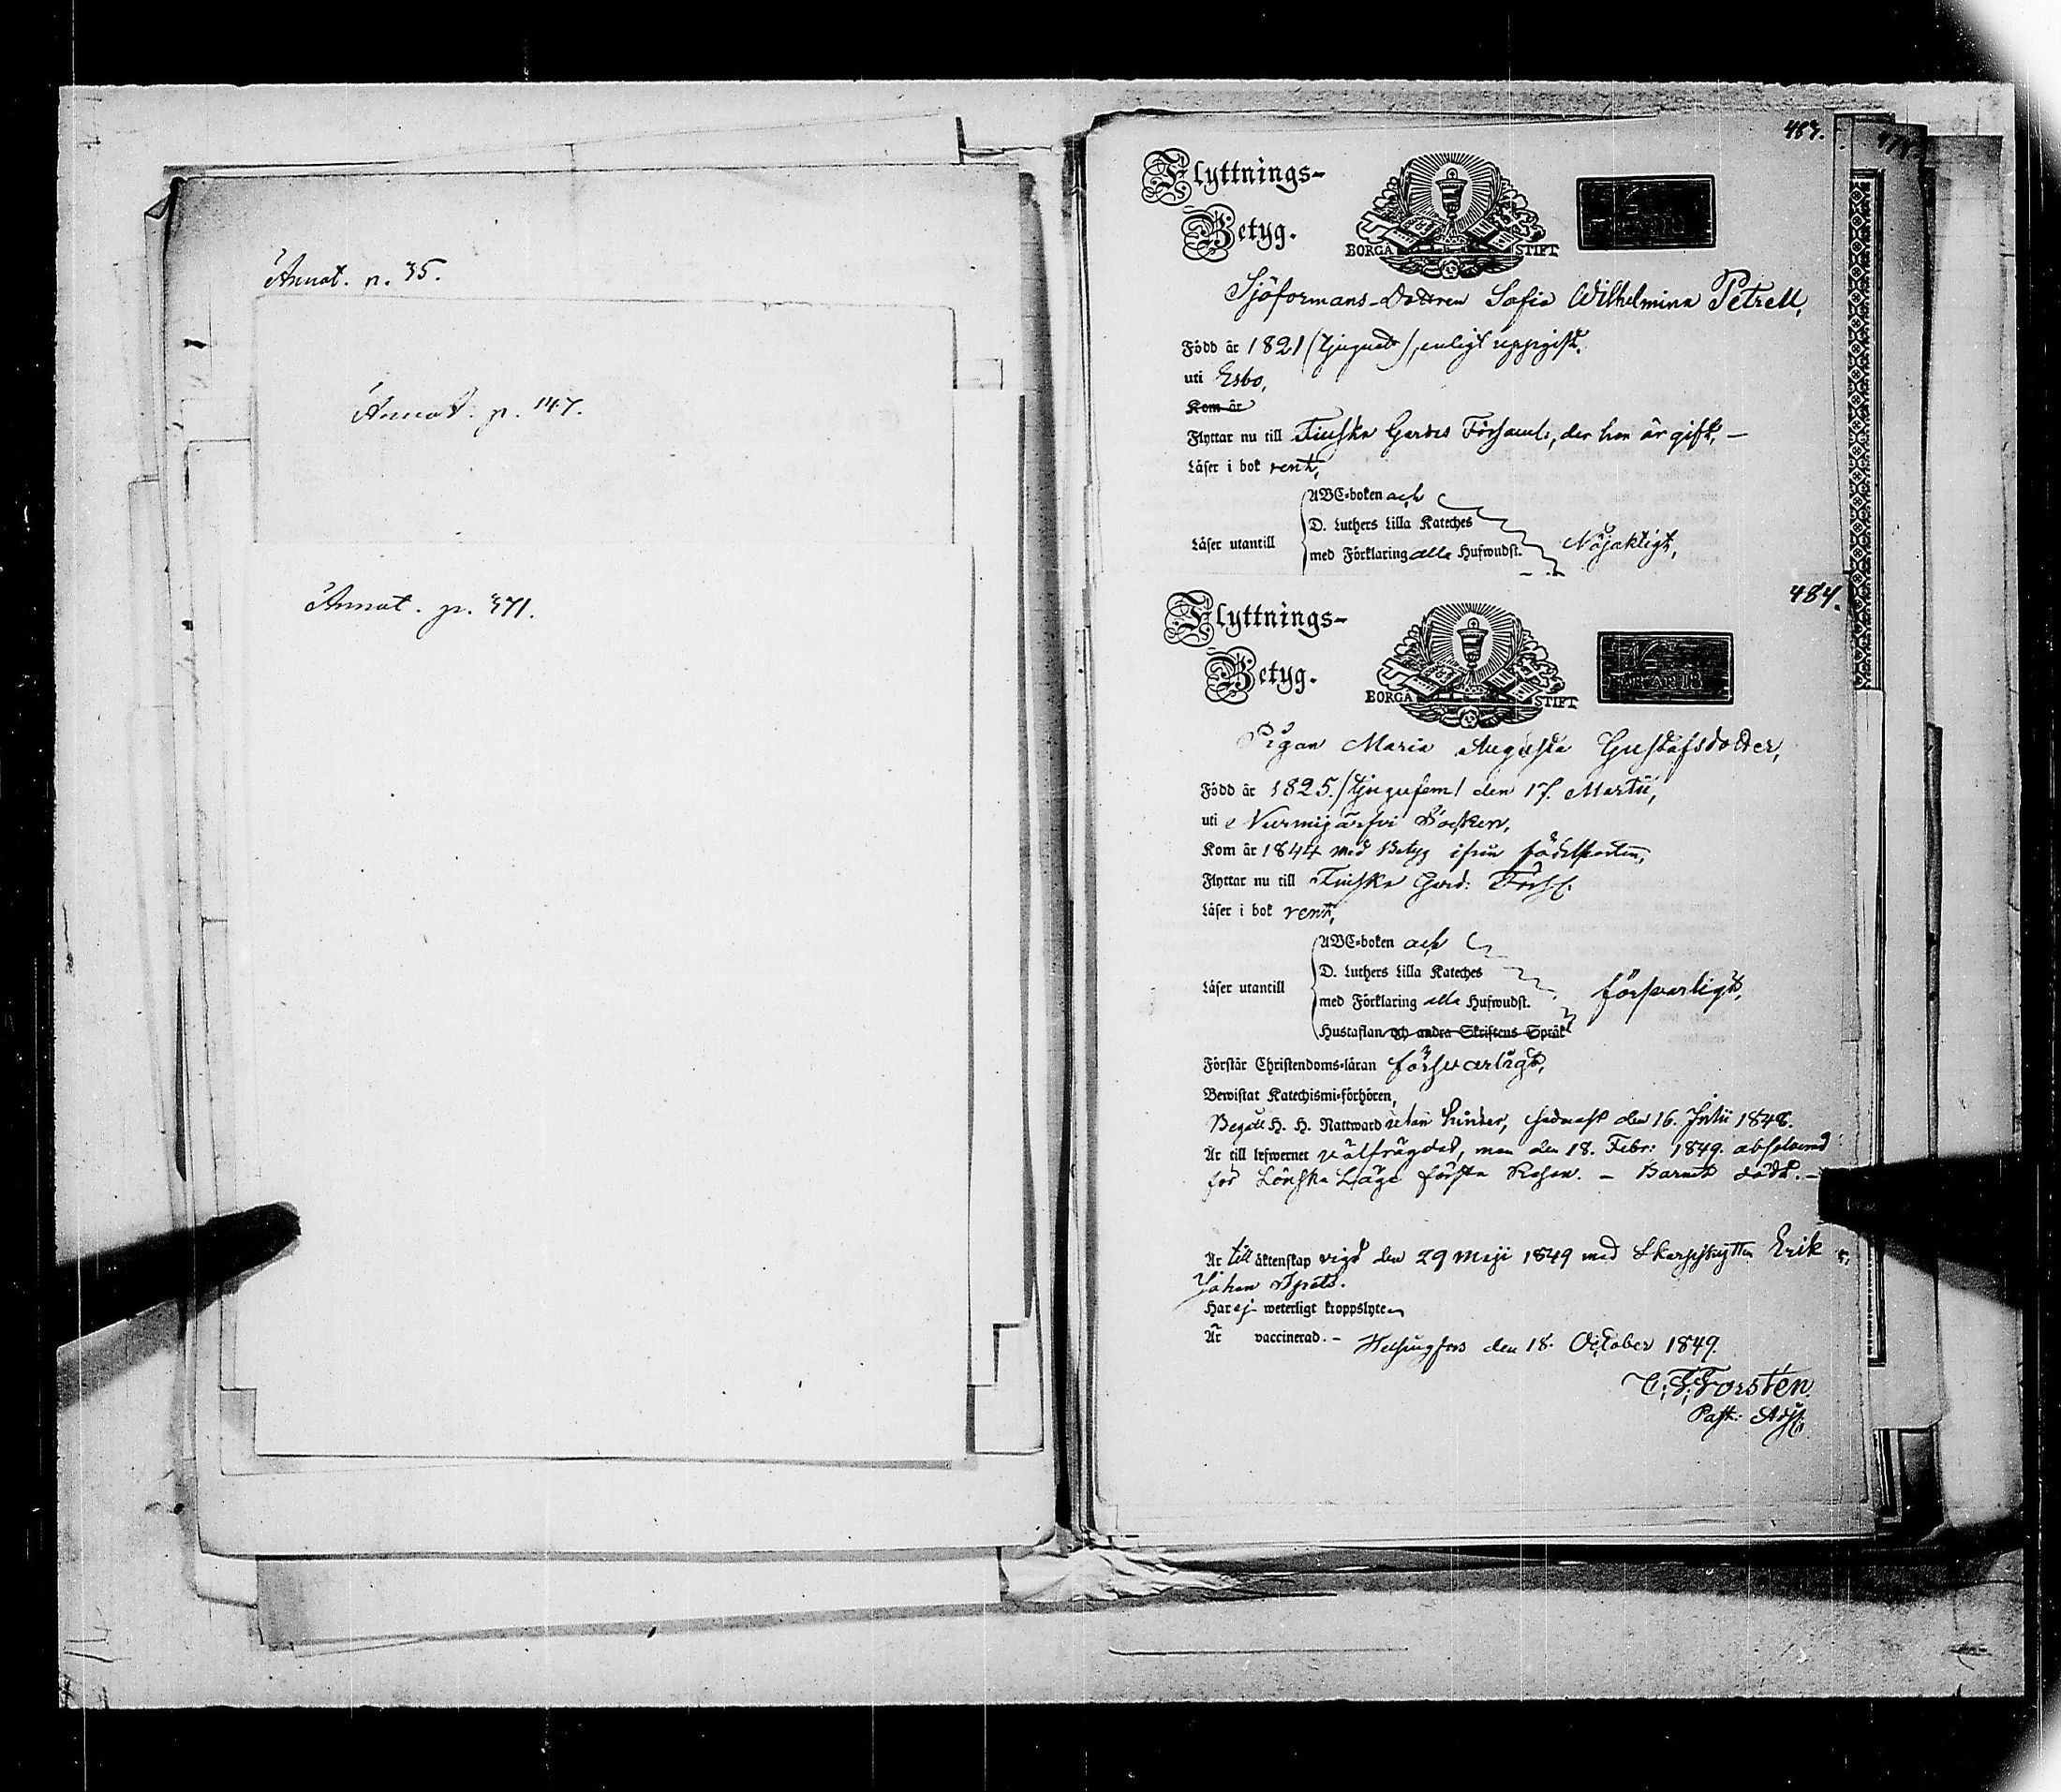 Annot. p. 35.
Annot. p. 147.
Annot. p. 371.
483.
Flyttnings-
Betyg.
BORGÅ STIFT
Sjöformans-Dottren Sofia Wilhelmina Petrell,
Född år 1821 (tjuguett), enligt uppgift,
uti Esbo,
Kom år
Flyttar nu till Finska Gardes Församl:, der hon är gift, —
Läser i bok rent,
ABC-boken och
D. Luthers Lilla Kateches
Läser utantill
med Förklaring alla Hufwudst.
Nöjaktigt,
484.
Flyttnings-
Betyg.
BORGÅ STIFT
Pigan Maria Augusta Gustafsdotter,
Född år 1825. (tjugufem) den 17. Martii,
uti Nurmijärfvi Socken,
Kom år 1844 med Betyg ifrån födelseorten,
Flyttar nu till Finska Gard: Förs:
Läser i bok rent,
ABC-boken och
D. Luthers Lilla Kateches
Läser utantill
med Förklaring alla Hufwudst.
försvarligt,
Hustaflan och andra Skriftens Språk
Förstår Christendoms-läran försvarligt,
Bewistat Katechismi-förhören,
Begått H. H. Nattward utan hinder, sednast den 16. Julii 1848.
Är till lefwernet välfrägdad, men den 18. Febr: 1849. absolverad
för Lönska Läge första Resan. — Barnet dödt. —
Är till äktenskap vigd den 29 Maji 1849 med Skarpskytten Erik
Johan
Har ej weterligt kroppslyte
Är vaccinerad. — Helsingfors den 18. October 1849.
C. F. Forstén.
Past: Adj: